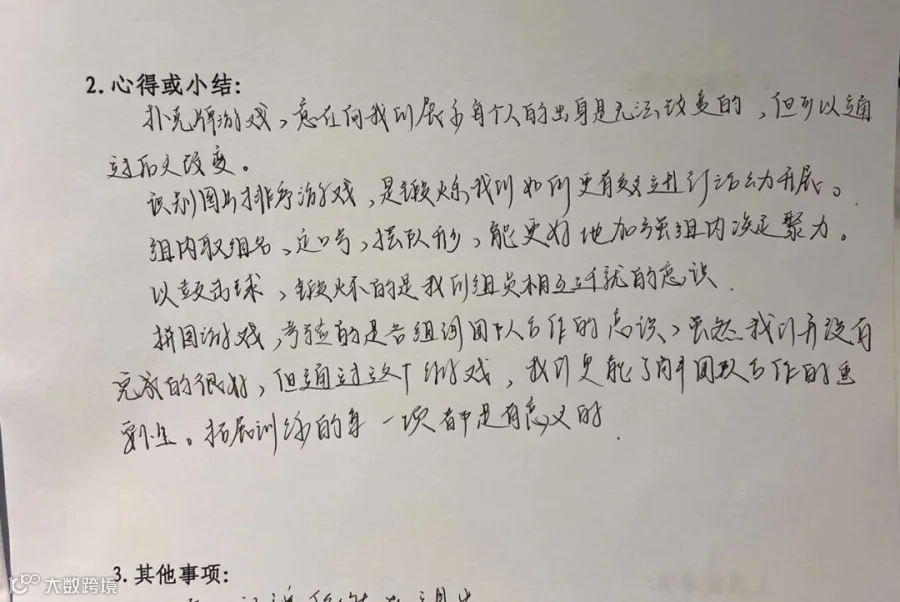 2. 心得或小结:
扑克牌游戏，意在向我们展示每个人的出身是无法改变的，但可以通
过后天改变。
识别图片排序游戏，是锻炼我们如何更有效立进行活动开展。
组内取组名、定口号，摆队形，能更好地加强组内凝聚力。
以鼓击球，锻炼的是我们组员相互迁就的意识
拼图游戏，考验的是各组间团队合作的意识，虽然我们并没有
完成的很好，但通过这个游戏，我们更能了解团队合作的重
要性。拓展训练的每一项都是有意义的.
3. 其他事项:
大数跨境